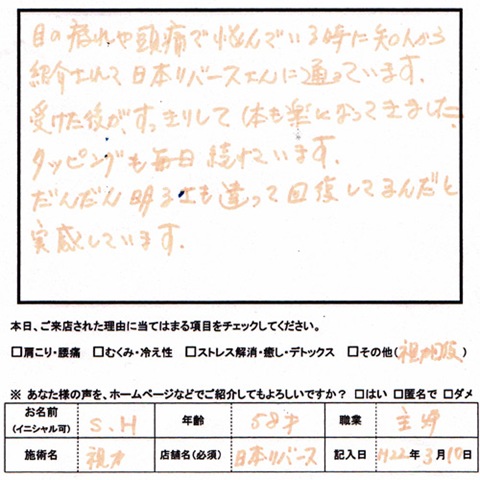 目の疲れや頭痛で悩んでいる時に知人から
紹介されて日本リバースさんに通っています.
受けた後が、すっきりして体も楽になってきました.
タッピングも毎日続けています.
だんだん明るさも違って回復してるんだと
実感しています.
本日、ご来店された理由に当てはまる項目をチェックしてください。
□肩こり・腰痛 □むくみ・冷え性 □ストレス解消・癒し・デトックス □その他(視力回復)
※ あなた様の声を、ホームページなどでご紹介してもよろしいですか？ □はい □匿名で □ダメ
お名前(イニシャル可) S.H 年齢 58才 職業 主婦
施術名 視力 店舗名(必須) 日本リバース 記入日 H22年3月10日